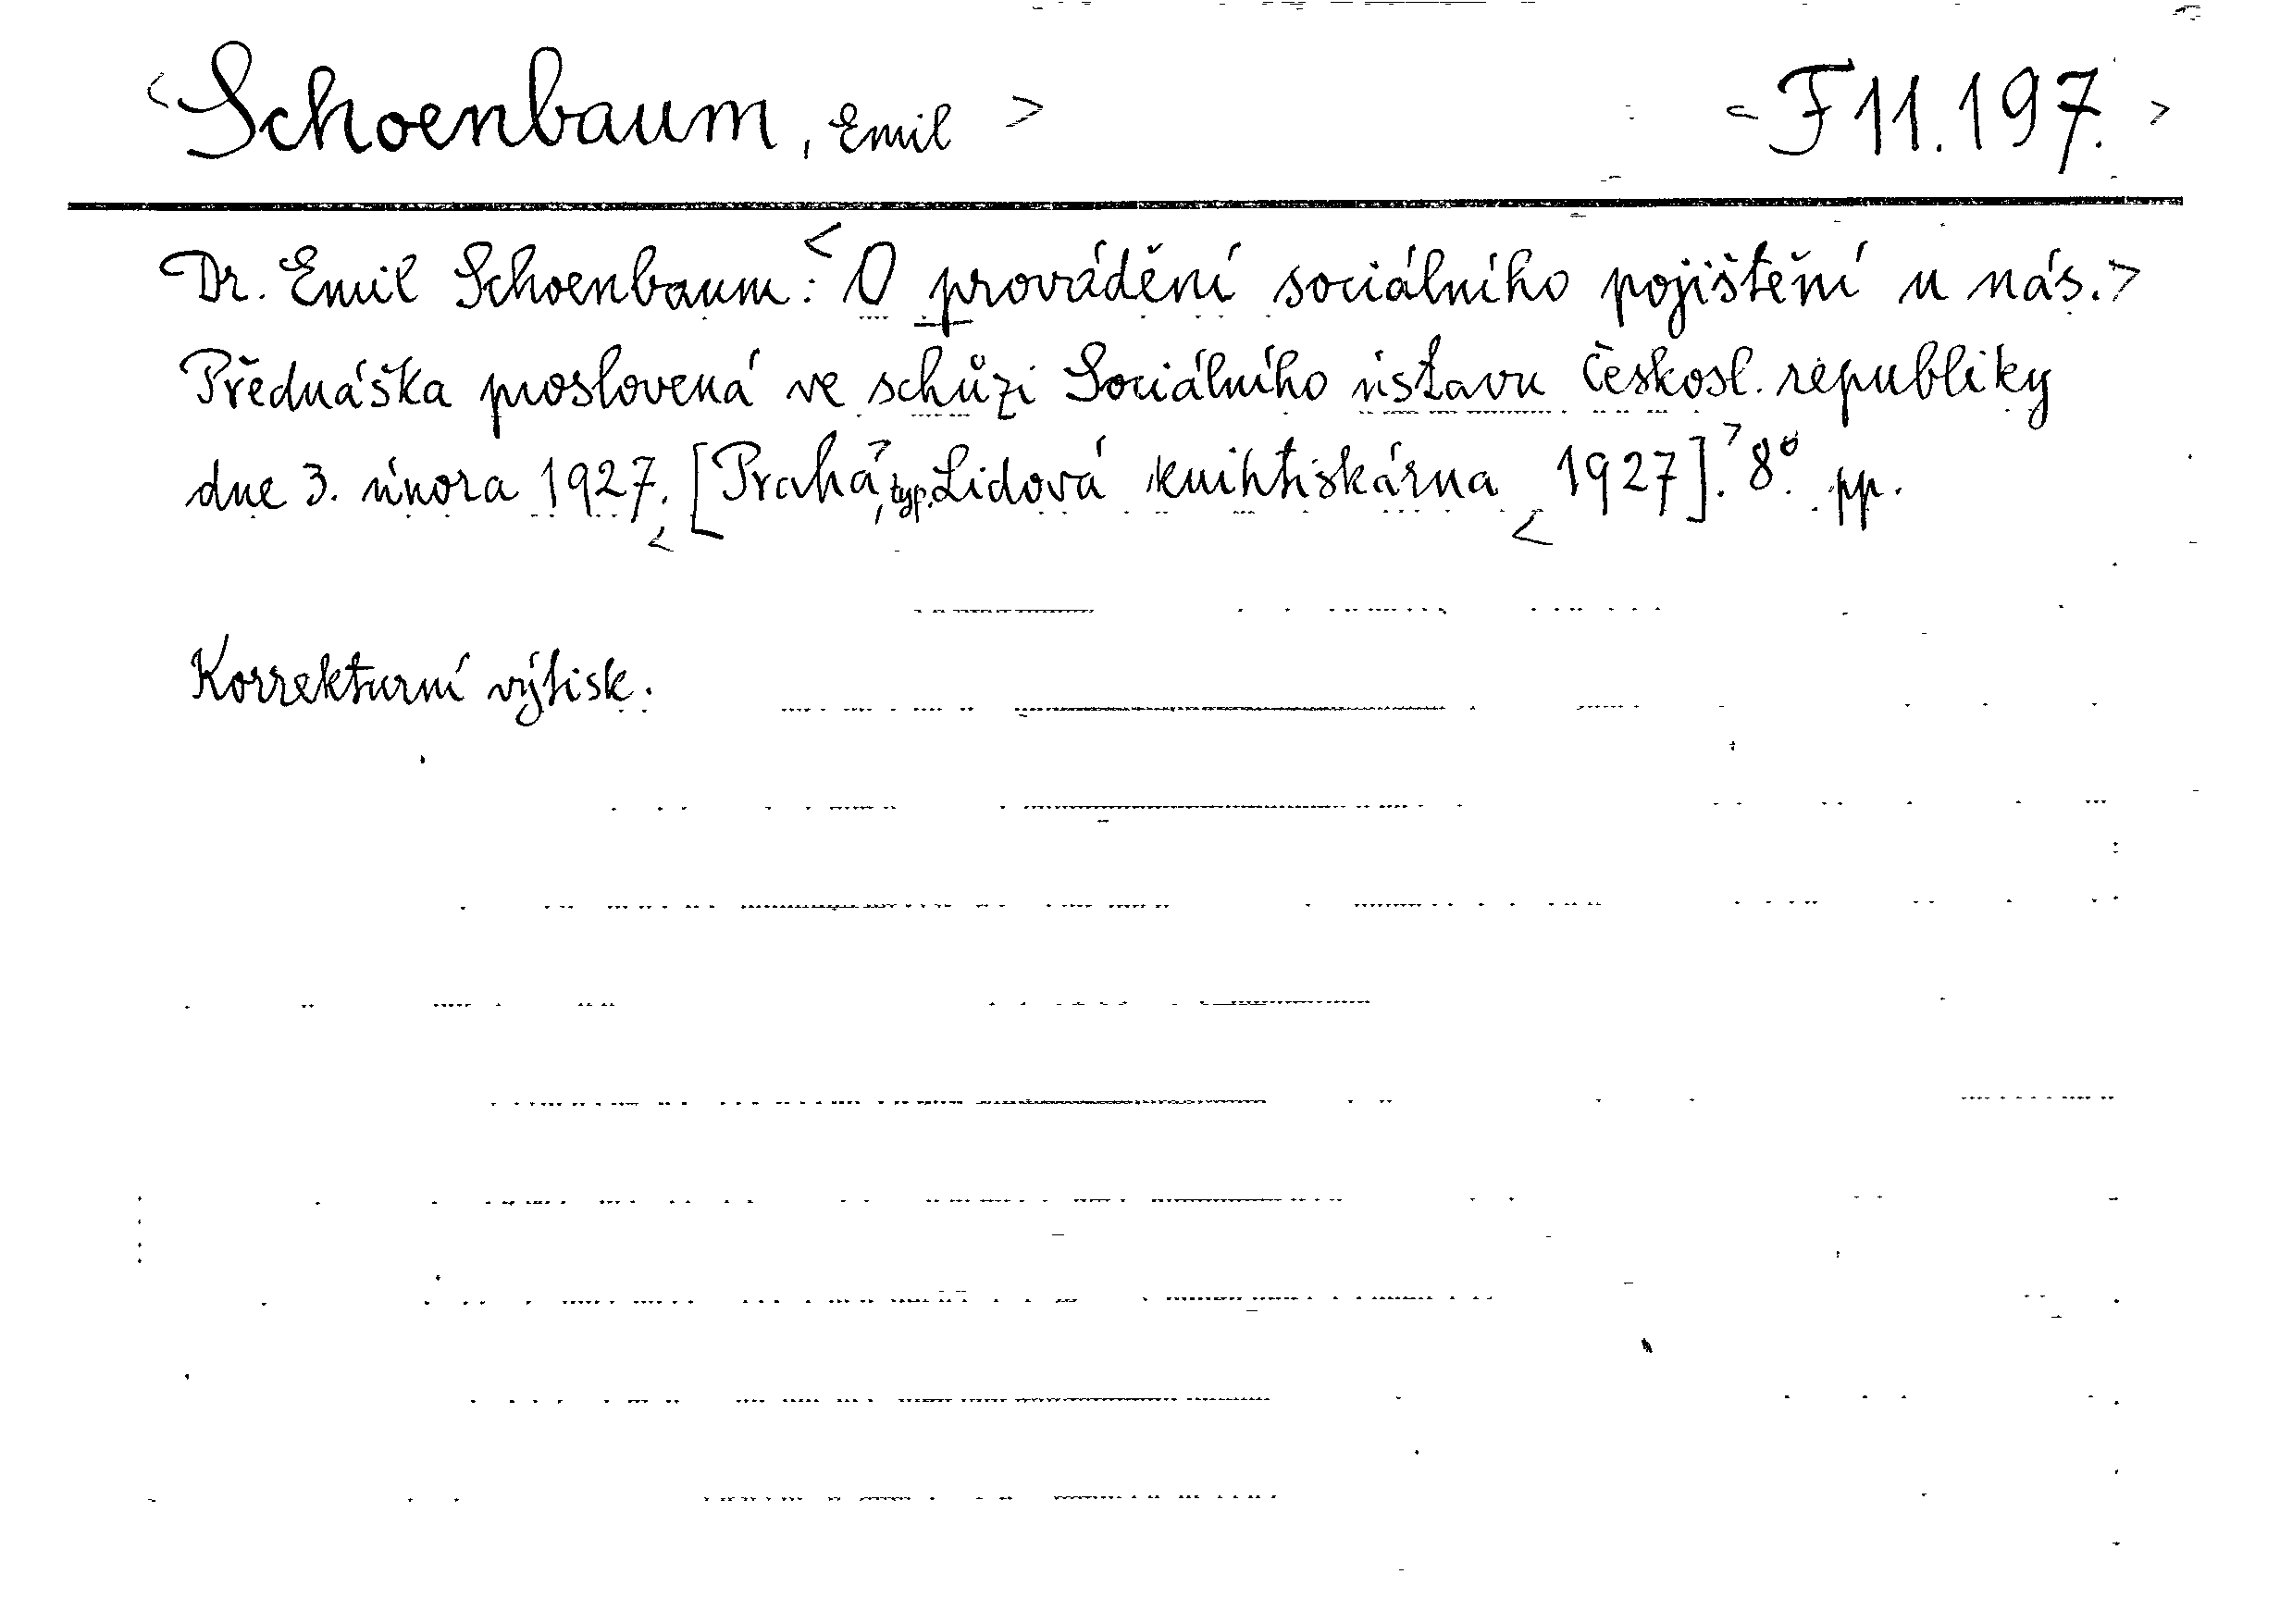 <Schoenbaum, Emil> <F 11.197.>
Dr. Emil Schoenbaum: <O provádění sociálního pojištění u nás.>
Přednáška proslovená ve schůzi Sociálního ústavu Českosl. republiky
dne 3. února 1927. <[Praha>, typ. Lidová knihtiskárna <1927].> 8°. pp.
Korrekturní výtisk.